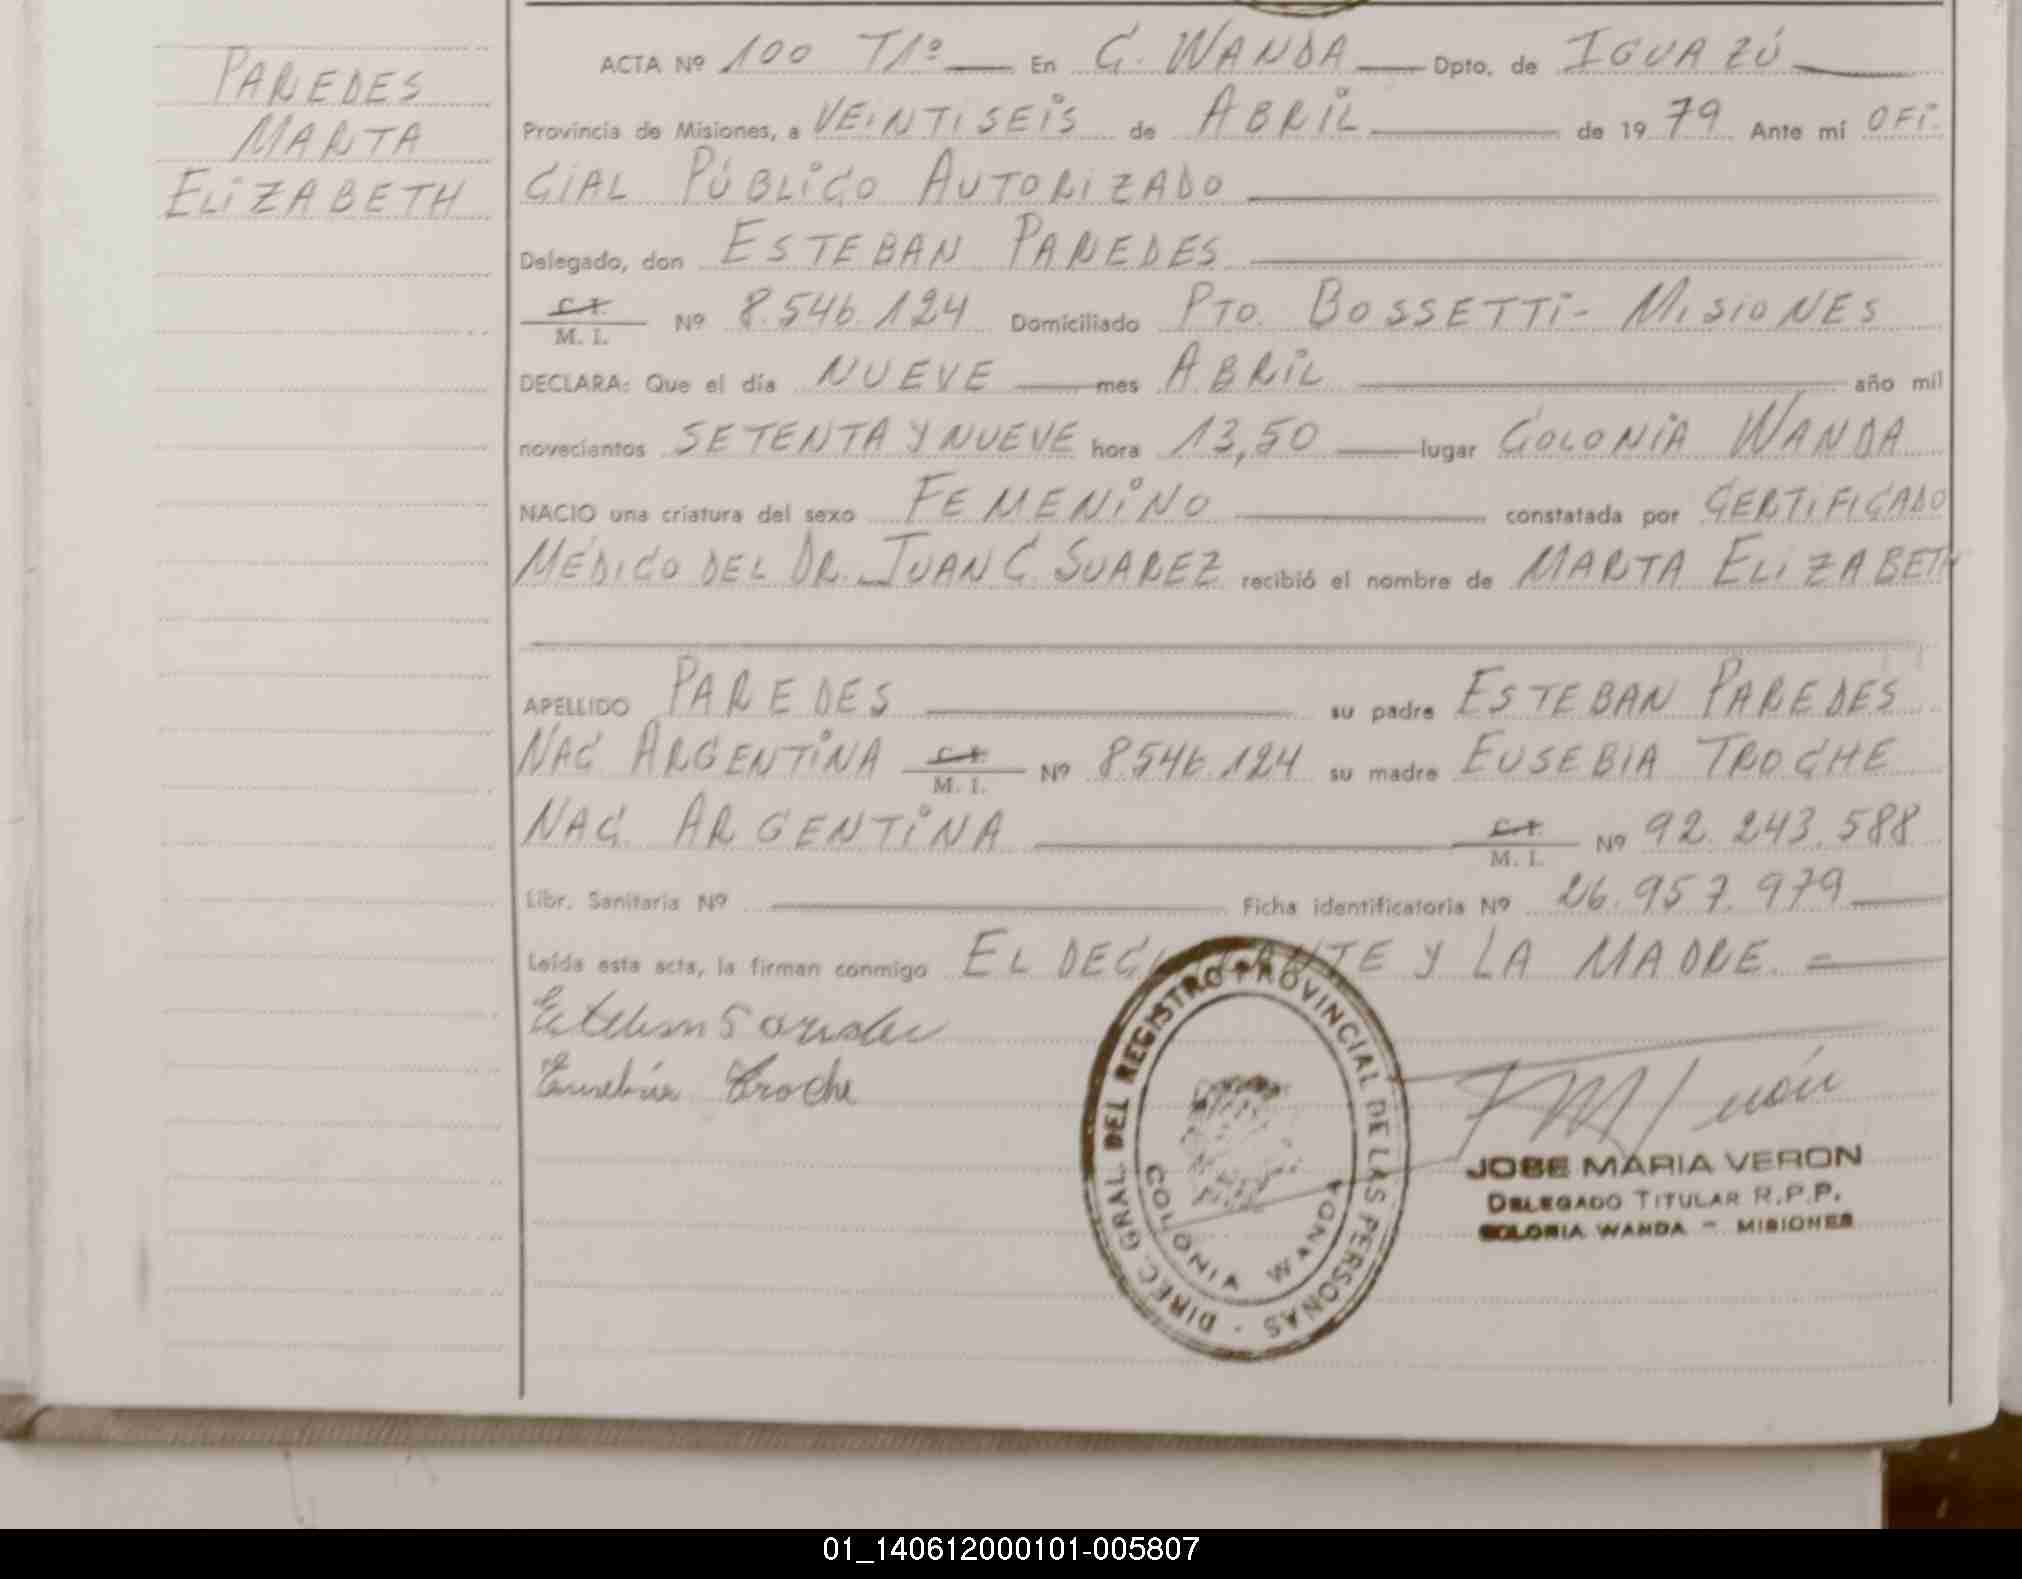 PAREDES
MARTA
ELIZABETH
ACTA Nº 100 T1º En C. WANDA Dpto. de IGUAZÚ
Provincia de Misiones, a VEINTISEIS de ABRIL de 1979 Ante mí OFI-
CIAL PÚBLICO AUTORIZADO
Delegado, don ESTEBAN PAREDES
C.I.
M. I. Nº 8.546.124 Domiciliado PTO. BOSSETTI - MISIONES
DECLARA: Que el día NUEVE mes ABRIL año mil
novecientos SETENTA Y NUEVE hora 13,50 lugar COLONIA WANDA
NACIO una criatura del sexo FEMENINO constatada por CERTIFICADO
MÉDICO DEL DR. JUAN C. SUAREZ recibió el nombre de MARTA ELIZABETH
APELLIDO PAREDES su padre ESTEBAN PAREDES
NAC. ARGENTINA C.I. M. I. Nº 8.546.124 su madre EUSEBIA TROCHE
NAC. ARGENTINA C.I. M. I. Nº 92.243.588
Libr. Sanitaria Nº Ficha identificatoria Nº 26.957.979
Leída esta acta, la firman conmigo EL DECLARANTE Y LA MADRE. =
Esteban Paredes
Eusebia Troche
DIREC. GRAL. DEL REGISTRO PROVINCIAL DE LAS PERSONAS -
COLONIA WANDA
JOSE MARIA VERON
DELEGADO TITULAR R.P.P.
COLONIA WANDA - MISIONES
01_140612000101-005807